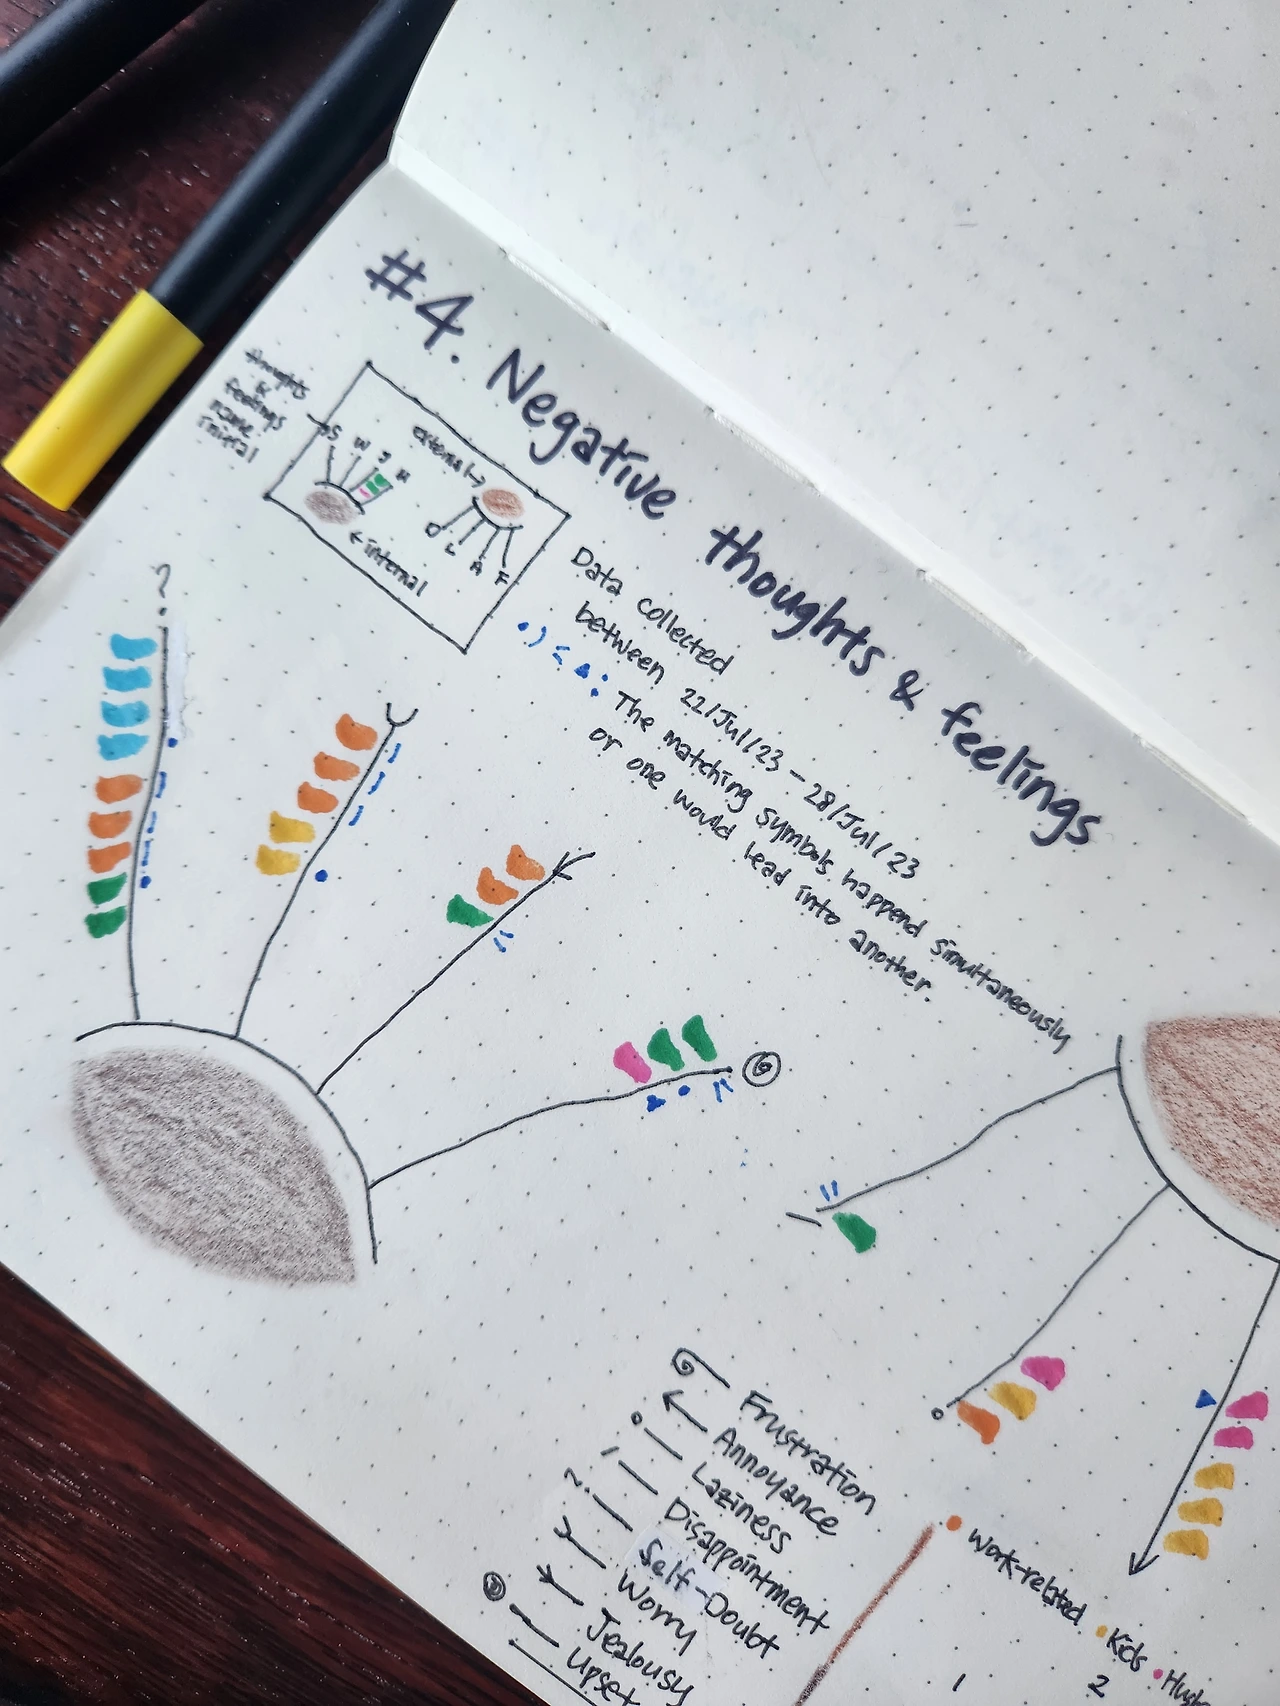 #4. Negative thoughts & feelings
thoughts
&
feelings
name
S W J
external →
← internal
L A F
Data collected
between 22/Jul/23 - 28/Jul/23
: The matching symbols happend simultaneously
or one would lead into another.
?
Frustration
Annoyance
Laziness
Disappointment
Self-Doubt
Worry
Jealousy
Upset
work-related
Kids
1 2